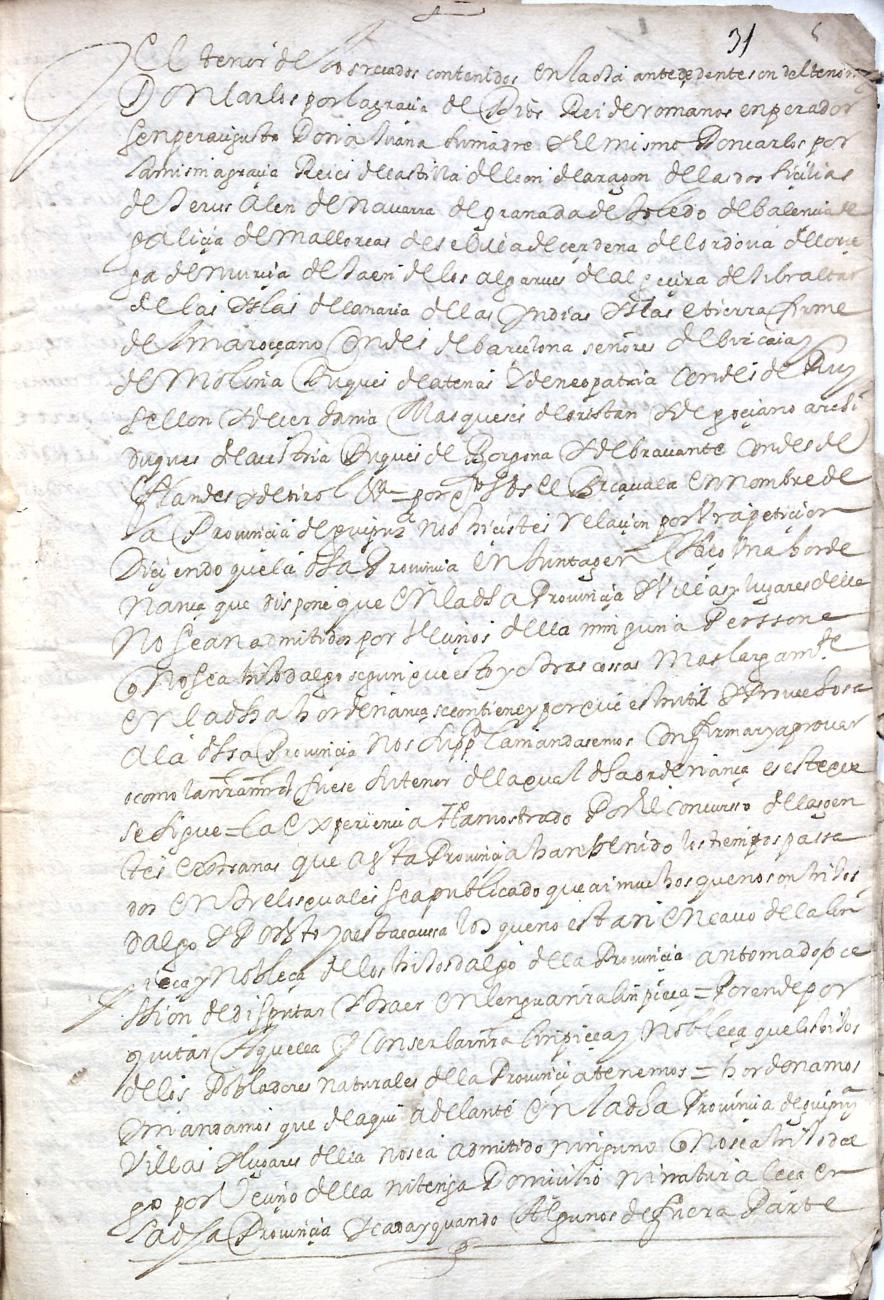 31
El tenor de los recados contenidos en la oja antecedente son del tenor
Don Carlos por la gracia de Dios Rei de romanos enperador
senper augusto Dona Juana su madre y el mismo Don carlos por
la misma gracia Reies de castilla de leon de aragon de las dos sicilias
de Jerusalen de navarra de granada de toledo de balencia de
galicia de mallorcas de sebilla de cerdena de cordova de corce
ga de murcia de Jaen de los algarves de algecira de gibraltar
de las yslas de canaria de las yndias yslas e tierra firme
de el mar oceano Condes de barcelona señores de bizcaia y
de Molina Duques de atenas y de neopatria Condes de Ruy
sellon y de cerdania Marqueses de oristan y de gociano archi
duques de austria Duques de Borgoña y de bravante Condes de
flandes y de tirol &a = por q vos el en nombre de
la Provincia de guipuza nos hicistes relacion por vra peticion
Diciendo que la dha Provincia en Junta gen hiço una horde
nança que dispone que en la dha Provincia y villas y lugares della
no sean admitidos por vecinos della ninguna Perssona
q no sea hijodalgo segun que esto y otras cossas Mas largamte
en la dha hordenança se contiene y porque es hutil y Provechosa
a la dha Provincia nos suppca mandasemos confirmar y aprovar
o como la nra mrd fuese su tenor de la qual dha ordenança es este que
se sigue = la experiencia ha mostrado Por el concurso de las gen
tes extranas que a esta Provincia han benido los tiempos passa
dos entre los quales se a publicado que ai muchos que no son hijos
dalgo y Por esto y a esta causa los que no estan en cavo de la lin
pieça y Nobleça de los hijosdalgo de la Provincia an tomado oce
ssion de disputar y traer en lengua nra linpieça = Porende por
quitar aquella y Conserbar nra linpieça y Nobleça que los hijos
de los Pobladores naturales de la Provincia tenemos = hordenamos
y mandamos que de aqui adelante en la dha Provincia de guipuza
villas y lugares della no sea admitido ninguno q no sea hijodal
go por Vecino della ni tenga Domicilio ni naturaleça en
la dha Provincia y cada y quando Algunos de fuera Parte